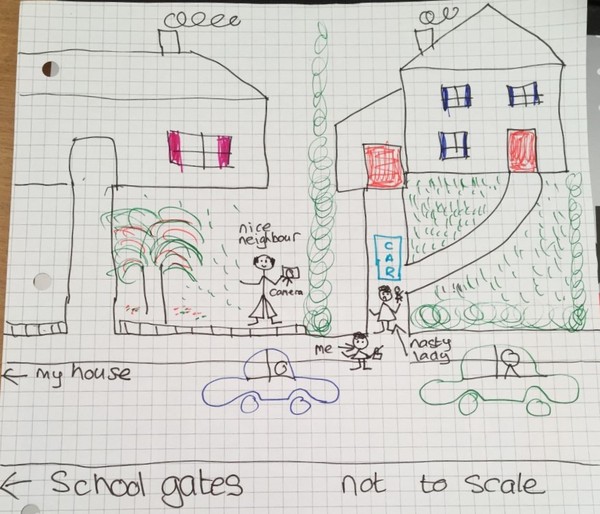 nice
neighbour
camera
CAR
me
nasty
lady
← my house
← School gates
not to scale